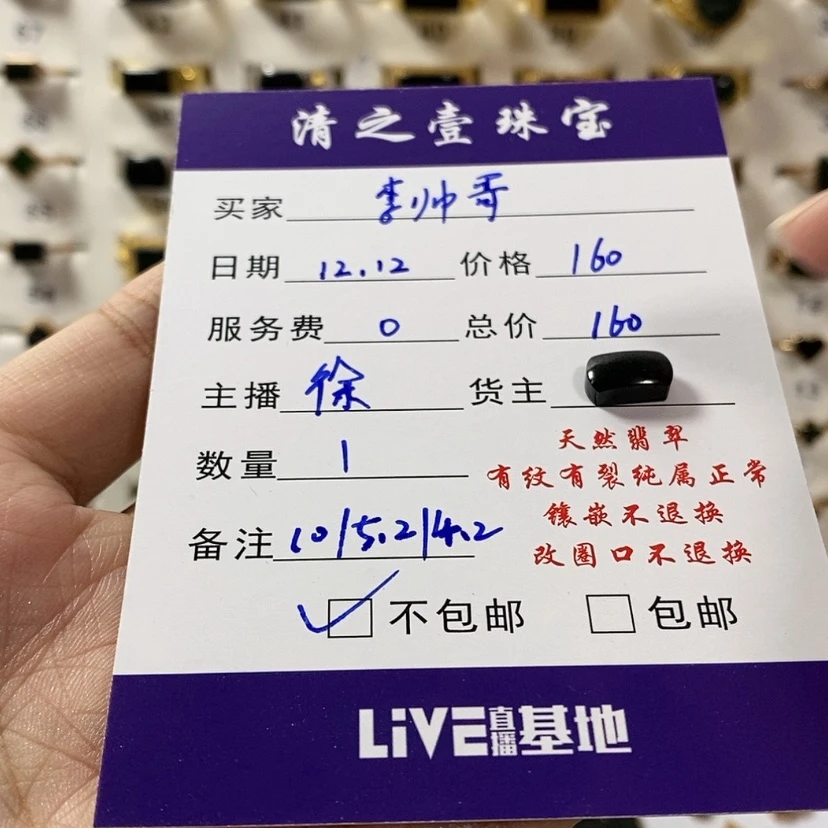 清之壹珠宝
买家 李帅哥
日期 12.12 价格 160
服务费 0 总价 160
主播 徐 货主
数量 1
天然翡翠
有纹有裂纯属正常
镶嵌不退换
改圈口不退换
备注 10/5.2/4.2
不包邮 包邮
LiVE直播基地